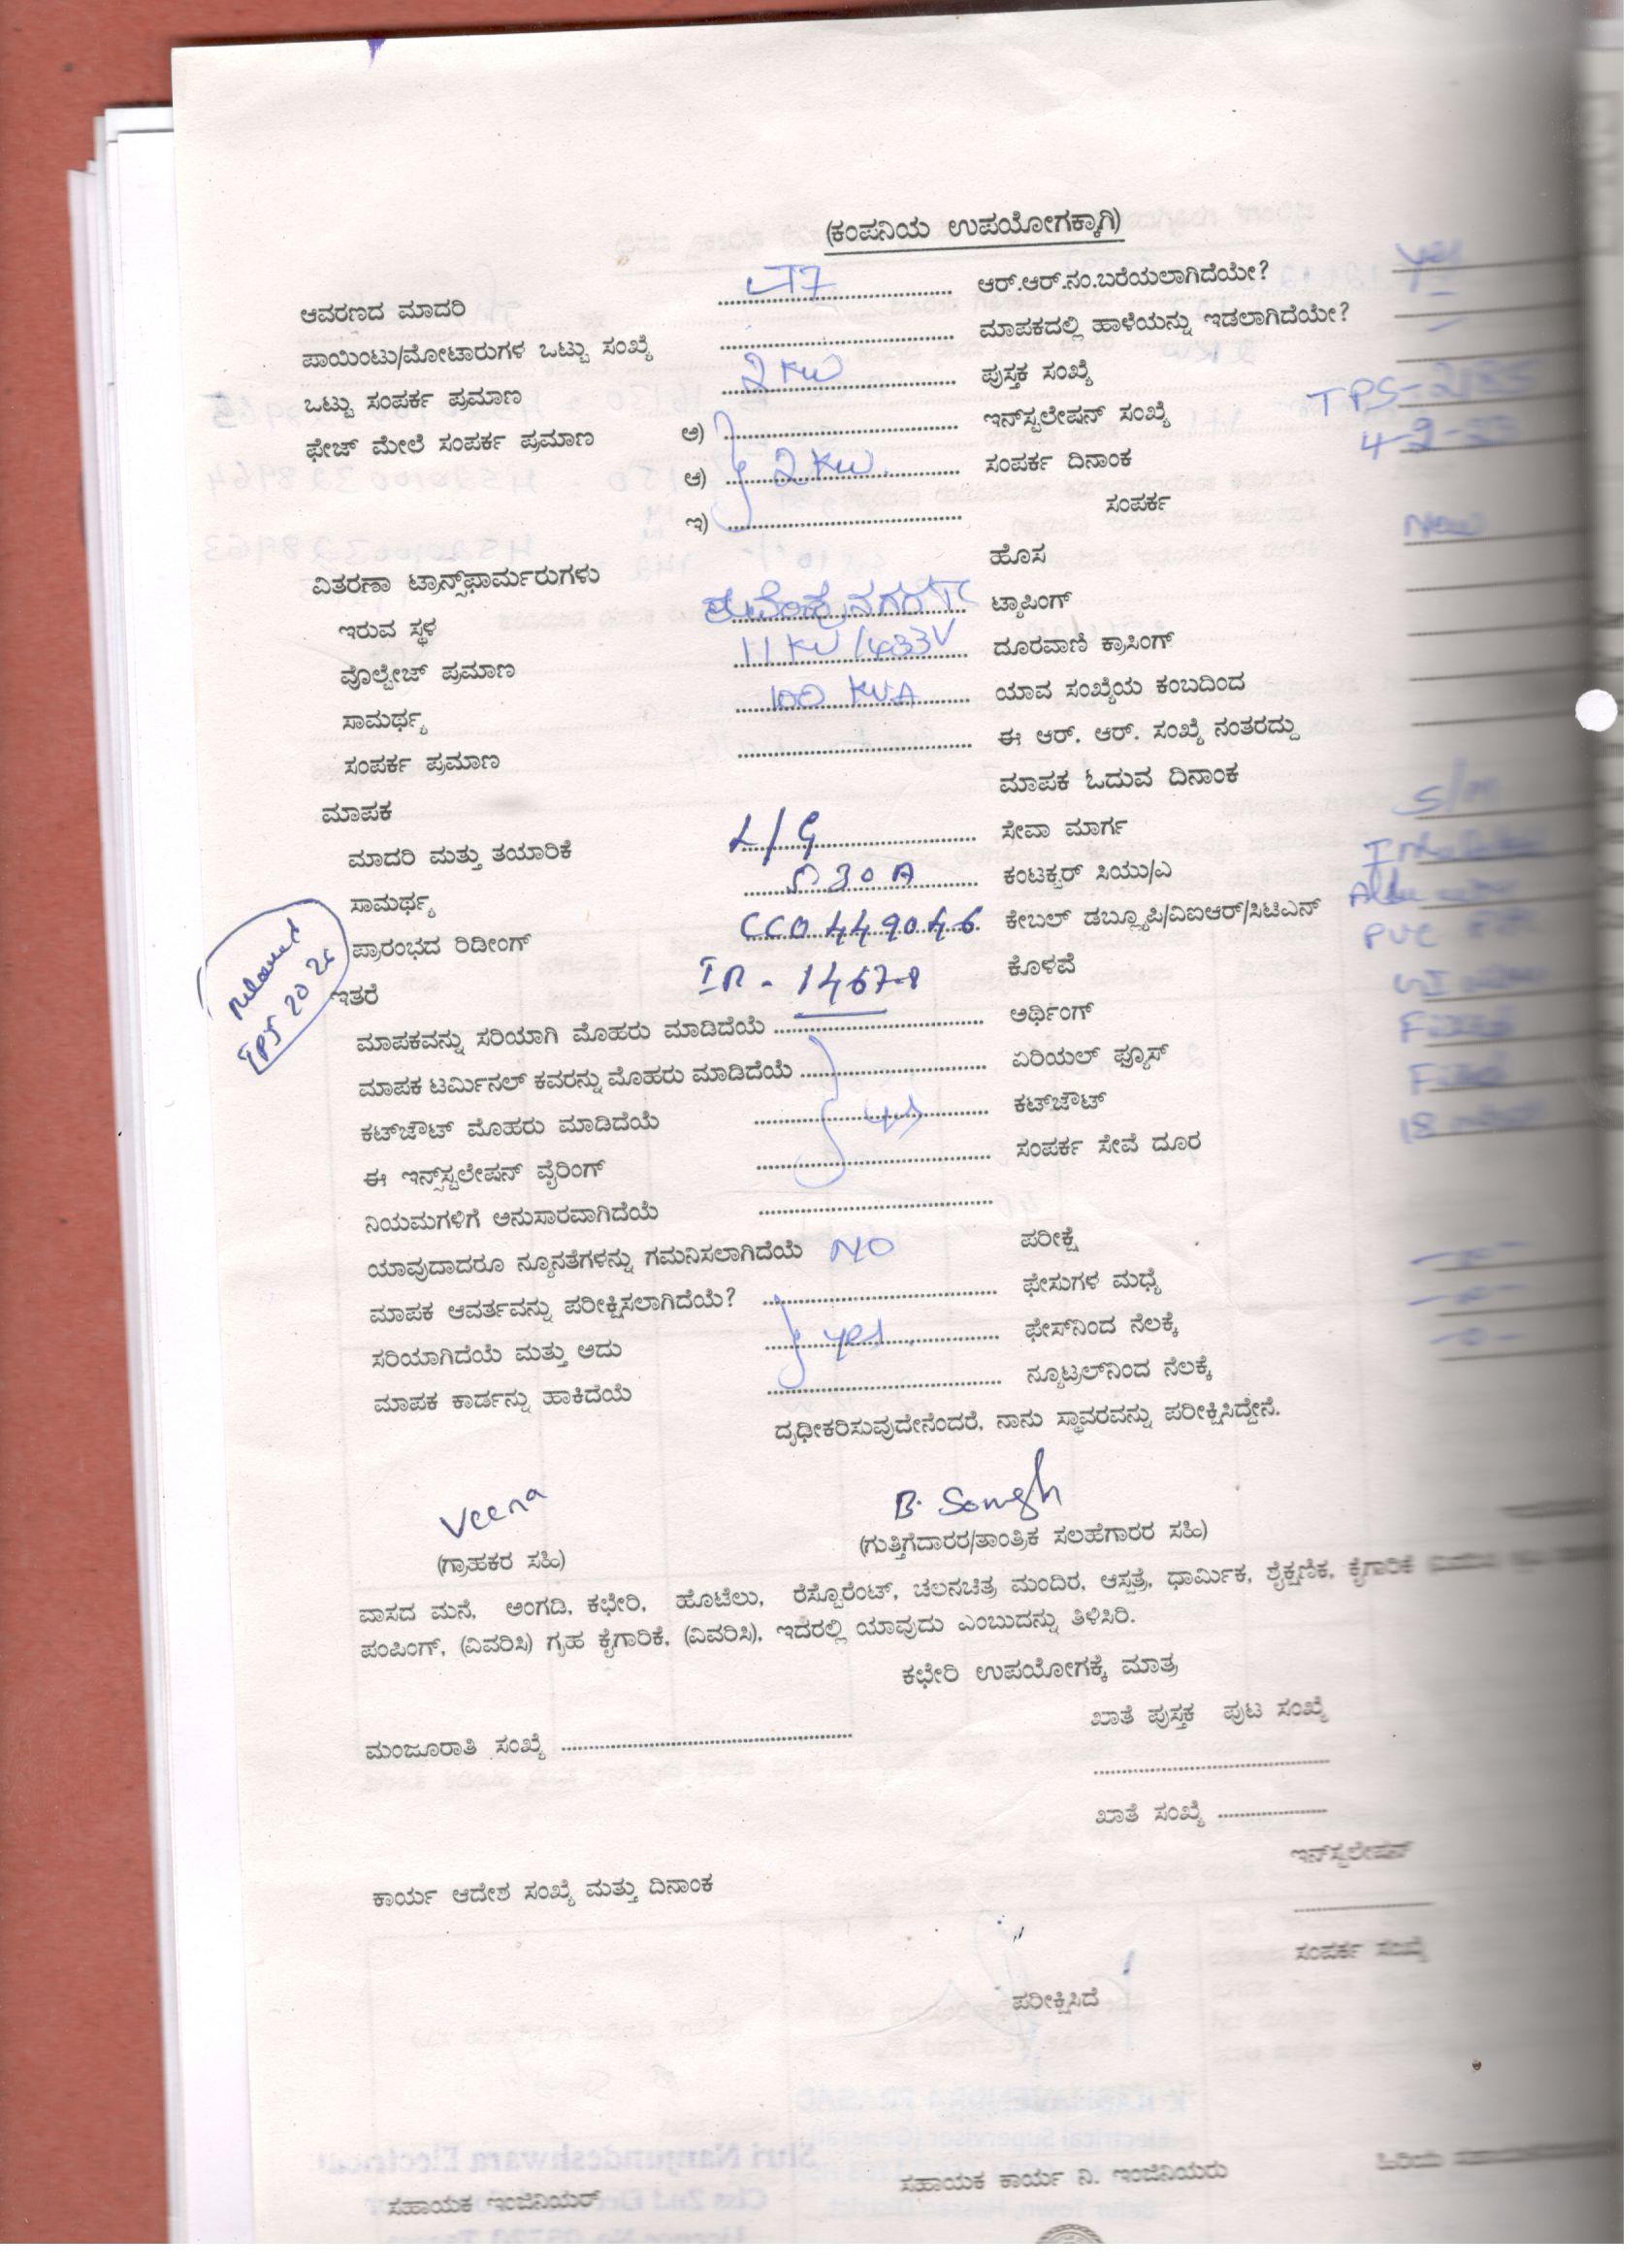 (ಕಂಪನಿಯ ಉಪಯೋಗಕ್ಕಾಗಿ)
ಆವರಣದ ಮಾದರಿ LT7 ಆರ್.ಆರ್.ನಂ.ಬರೆಯಲಾಗಿದೆಯೇ? Yes
ಪಾಯಿಂಟು/ಮೋಟಾರುಗಳ ಒಟ್ಟು ಸಂಖ್ಯೆ ಮಾಪಕದಲ್ಲಿ ಹಾಳೆಯನ್ನು ಇಡಲಾಗಿದೆಯೇ? -
ಒಟ್ಟು ಸಂಪರ್ಕ ಪ್ರಮಾಣ 2 KW ಪುಸ್ತಕ ಸಂಖ್ಯೆ
ಫೇಜ್ ಮೇಲೆ ಸಂಪರ್ಕ ಪ್ರಮಾಣ ಅ) ಇನ್‌ಸ್ಟಲೇಷನ್ ಸಂಖ್ಯೆ
ಆ) 2 KW ಸಂಪರ್ಕ ದಿನಾಂಕ
ಇ) ಸಂಪರ್ಕ
ಹೊಸ New
ವಿತರಣಾ ಟ್ರಾನ್ಸ್‌ಫಾರ್ಮರುಗಳು
ಇರುವ ಸ್ಥಳ ಟ್ಯಾಪಿಂಗ್
ವೊಲ್ಟೇಜ್ ಪ್ರಮಾಣ 11 KV/433V ದೂರವಾಣಿ ಕ್ರಾಸಿಂಗ್
ಸಾಮರ್ಥ್ಯ 100 KVA ಯಾವ ಸಂಖ್ಯೆಯ ಕಂಬದಿಂದ
ಸಂಪರ್ಕ ಪ್ರಮಾಣ ಈ ಆರ್. ಆರ್. ಸಂಖ್ಯೆ ನಂತರದ್ದು
ಮಾಪಕ ಮಾಪಕ ಓದುವ ದಿನಾಂಕ
ಮಾದರಿ ಮತ್ತು ತಯಾರಿಕೆ L/G ಸೇವಾ ಮಾರ್ಗ
ಸಾಮರ್ಥ್ಯ 30 A ಕಂಟಕ್ಟರ್ ಸಿಯು/ಎ
ಪ್ರಾರಂಭದ ರಿಡೀಂಗ್ CC0449046 ಕೇಬಲ್ ಡಬ್ಲ್ಯೂಪಿ/ವಿಐಆರ್/ಸಿಟಿಎನ್ PVC
ಇತರೆ IR - 1467.8 ಕೊಳವೆ
ಮಾಪಕವನ್ನು ಸರಿಯಾಗಿ ಮೊಹರು ಮಾಡಿದೆಯೆ ಅರ್ಥಿಂಗ್
ಮಾಪಕ ಟರ್ಮಿನಲ್ ಕವರನ್ನು ಮೊಹರು ಮಾಡಿದೆಯೆ ಏರಿಯಲ್ ಫ್ಯೂಸ್
ಕಟ್‌ಔಟ್ ಮೊಹರು ಮಾಡಿದೆಯೆ yes ಕಟ್‌ಔಟ್
ಈ ಇನ್ಸ್‌ಸ್ಟಲೇಷನ್ ವೈರಿಂಗ್ ಸಂಪರ್ಕ ಸೇವೆ ದೂರ
ನಿಯಮಗಳಿಗೆ ಅನುಸಾರವಾಗಿದೆಯೆ
ಯಾವುದಾದರೂ ನ್ಯೂನತೆಗಳನ್ನು ಗಮನಿಸಲಾಗಿದೆಯೆ NO ಪರೀಕ್ಷೆ
ಮಾಪಕ ಆವರ್ತವನ್ನು ಪರೀಕ್ಷಿಸಲಾಗಿದೆಯೆ? ಫೇಸುಗಳ ಮಧ್ಯೆ
ಸರಿಯಾಗಿದೆಯೆ ಮತ್ತು ಅದು yes ಫೇಸ್‌ನಿಂದ ನೆಲಕ್ಕೆ
ಮಾಪಕ ಕಾರ್ಡನ್ನು ಹಾಕಿದೆಯೆ ನ್ಯೂಟ್ರಲ್‌ನಿಂದ ನೆಲಕ್ಕೆ
ದೃಢೀಕರಿಸುವುದೇನೆಂದರೆ, ನಾನು ಸ್ಥಾವರವನ್ನು ಪರೀಕ್ಷಿಸಿದ್ದೇನೆ.
Veena
(ಗ್ರಾಹಕರ ಸಹಿ) (ಗುತ್ತಿಗೆದಾರರ/ತಾಂತ್ರಿಕ ಸಲಹೆಗಾರರ ಸಹಿ)
ವಾಸದ ಮನೆ, ಅಂಗಡಿ, ಕಛೇರಿ, ಹೊಟೆಲು, ರೆಸ್ಟೊರೆಂಟ್, ಚಲನಚಿತ್ರ ಮಂದಿರ, ಆಸ್ಪತ್ರೆ, ಧಾರ್ಮಿಕ, ಶೈಕ್ಷಣಿಕ, ಕೈಗಾರಿಕೆ
ಪಂಪಿಂಗ್, (ವಿವರಿಸಿ) ಗೃಹ ಕೈಗಾರಿಕೆ, (ವಿವರಿಸಿ), ಇದೆರಲ್ಲಿ ಯಾವುದು ಎಂಬುದನ್ನು ತಿಳಿಸಿರಿ.
ಕಛೇರಿ ಉಪಯೋಗಕ್ಕೆ ಮಾತ್ರ
ಮಂಜೂರಾತಿ ಸಂಖ್ಯೆ ಖಾತೆ ಪುಸ್ತಕ ಪುಟ ಸಂಖ್ಯೆ
ಖಾತೆ ಸಂಖ್ಯೆ
ಕಾರ್ಯ ಆದೇಶ ಸಂಖ್ಯೆ ಮತ್ತು ದಿನಾಂಕ ಇನ್‌ಸ್ಟಲೇಷನ್
ಸಂಪರ್ಕ ಸಂಖ್ಯೆ
ಪರೀಕ್ಷಿಸಿದೆ
ಸಹಾಯಕ ಇಂಜಿನಿಯರ್ ಸಹಾಯಕ ಕಾರ್ಯ ನಿ. ಇಂಜಿನಿಯರು